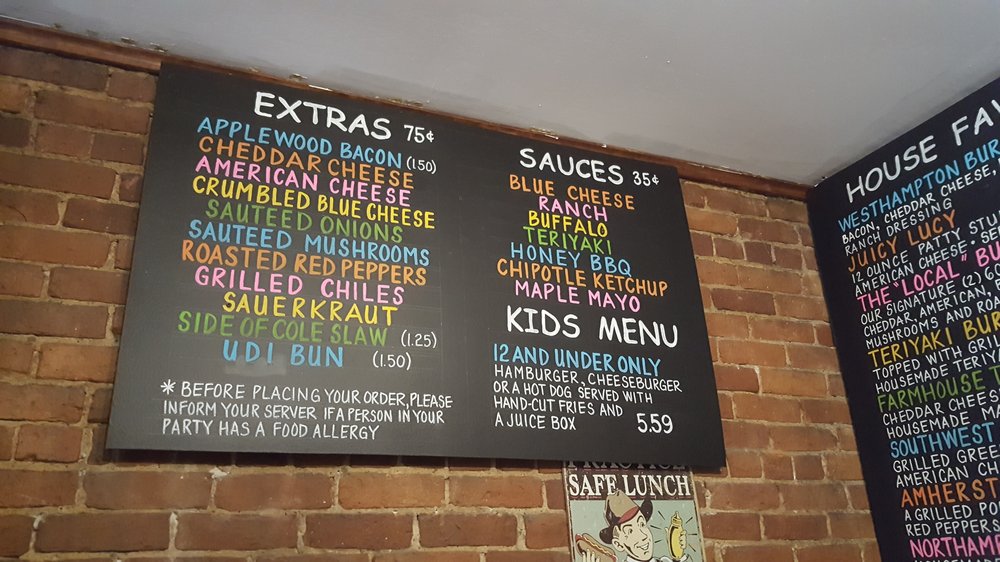 EXTRAS 75¢
APPLEWOOD BACON (1.50)
CHEDDAR CHEESE
AMERICAN CHEESE
CRUMBLED BLUE CHEESE
SAUTEED ONIONS
SAUTEED MUSHROOMS
ROASTED RED PEPPERS
GRILLED CHILES
SAUERKRAUT
SIDE OF COLE SLAW (1.25)
UDI BUN (1.50)
* BEFORE PLACING YOUR ORDER, PLEASE
INFORM YOUR SERVER IF A PERSON IN YOUR
PARTY HAS A FOOD ALLERGY
SAUCES 35¢
BLUE CHEESE
RANCH
BUFFALO
TERIYAKI
HONEY BBQ
CHIPOTLE KETCHUP
MAPLE MAYO
KIDS MENU
12 AND UNDER ONLY
HAMBURGER, CHEESEBURGER
OR A HOT DOG SERVED WITH
HAND-CUT FRIES AND
A JUICE BOX 5.59
PRACTICE
SAFE LUNCH
HOUSE FAV
WESTHAMPTON BUR
BACON, CHEDDAR CHEESE,
RANCH DRESSING
JUICY LUCY
12 OUNCE PATTY STU
AMERICAN CHEESE. SE
THE "LOCAL" BU
OUR SIGNATURE (2) 6
CHEDDAR, AMERICAN,
MUSHROOMS AND RO
TERIYAKI BUR
TOPPED WITH GRIL
HOUSEMADE TERIY
FARMHOUSE T
CHEDDAR CHEES
HOUSEMADE MA
SOUTHWEST
GRILLED GREE
AMERICAN CH
AMHERST
A GRILLED PO
RED PEPPERS
NORTHAMP